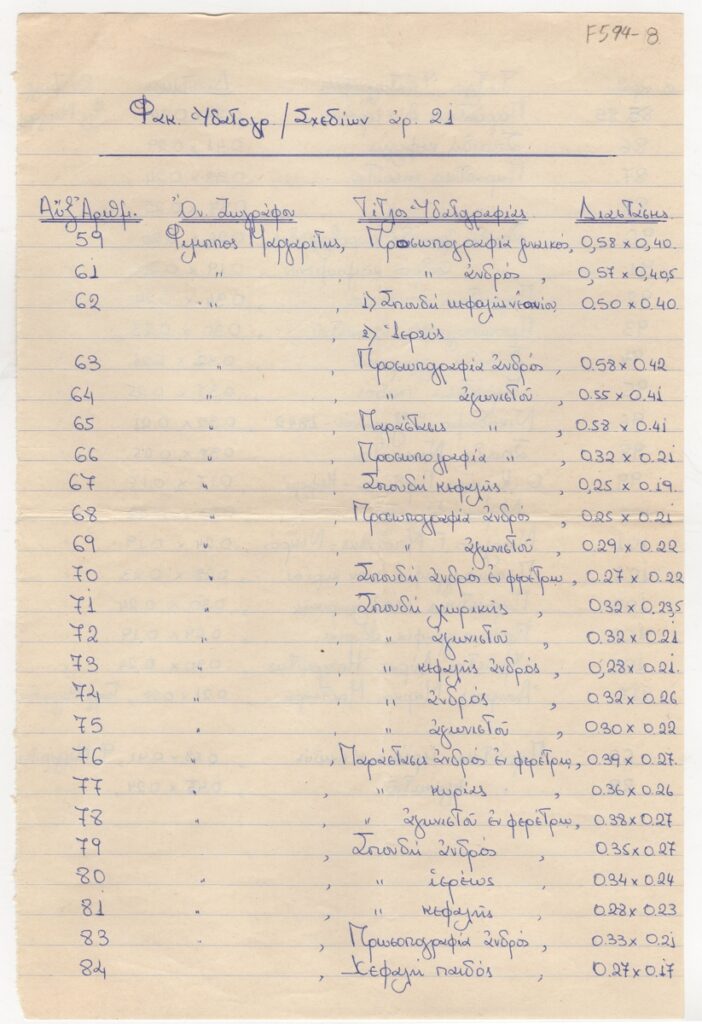 F594-8
Φακ. Ὑδατογρ/Σχεδίων ἀρ. 21
Αὔξ Ἀριθμ. Ὀν. Ζωγράφου Τίτλος Ὑδατογραφίας Διαστάσεις
59 Φίλιππος Μαργαρίτης, Προσωπογραφία γυναικός, 0,58 x 0,40.
61 " " ἀνδρός, 0,57 x 0,40,5
62 " , 1) Σπουδή κεφαλῆς νεανίου, 0,50 x 0.40
, 2) Ἱερεύς
63 " , Προσωπογραφία ἀνδρός, 0.58 x 0.42
64 " , " ἀγωνιστοῦ, 0.55 x 0.41
65 " , Παράστασις " , 0.58 x 0.41
66 " , Προσωπογραφία " , 0.32 x 0.21
67 " , Σπουδή κεφαλῆς , 0,25 x 0.19.
68 " , Προσωπογραφία ἀνδρός , 0.25 x 0.21
69 " , " ἀγωνιστοῦ , 0.29 x 0.22
70 " , Σπουδή ἀνδρός ἐν φερέτρῳ, 0.27 x 0.22
71 " , Σπουδή χωρικῆς , 0.32 x 0.23,5
72 " , " ἀγωνιστοῦ , 0.32 x 0.21
73 " , " κεφαλῆς ἀνδρός , 0,28 x 0.21.
74 " , " ἀνδρός , 0.32 x 0.26
75 " , " ἀγωνιστοῦ 0.30 x 0.22
76 " , Παράστασις ἀνδρός ἐν φερέτρῳ, 0.39 x 0.27.
77 " , " κυρίας , 0.36 x 0.26
78 " , " ἀγωνιστοῦ ἐν φερέτρῳ, 0.38 x 0.27
79 , Σπουδή ἀνδρός , 0.35 x 0.27
80 " , " ἱερέως , 0.34 x 0.24
81 " , " κεφαλῆς , 0.28 x 0.23
83 " , Πρωσοπογραφία ἀνδρός, 0.33 x 0.21
84 , Κεφαλή παιδός , 0.27 x 0.17